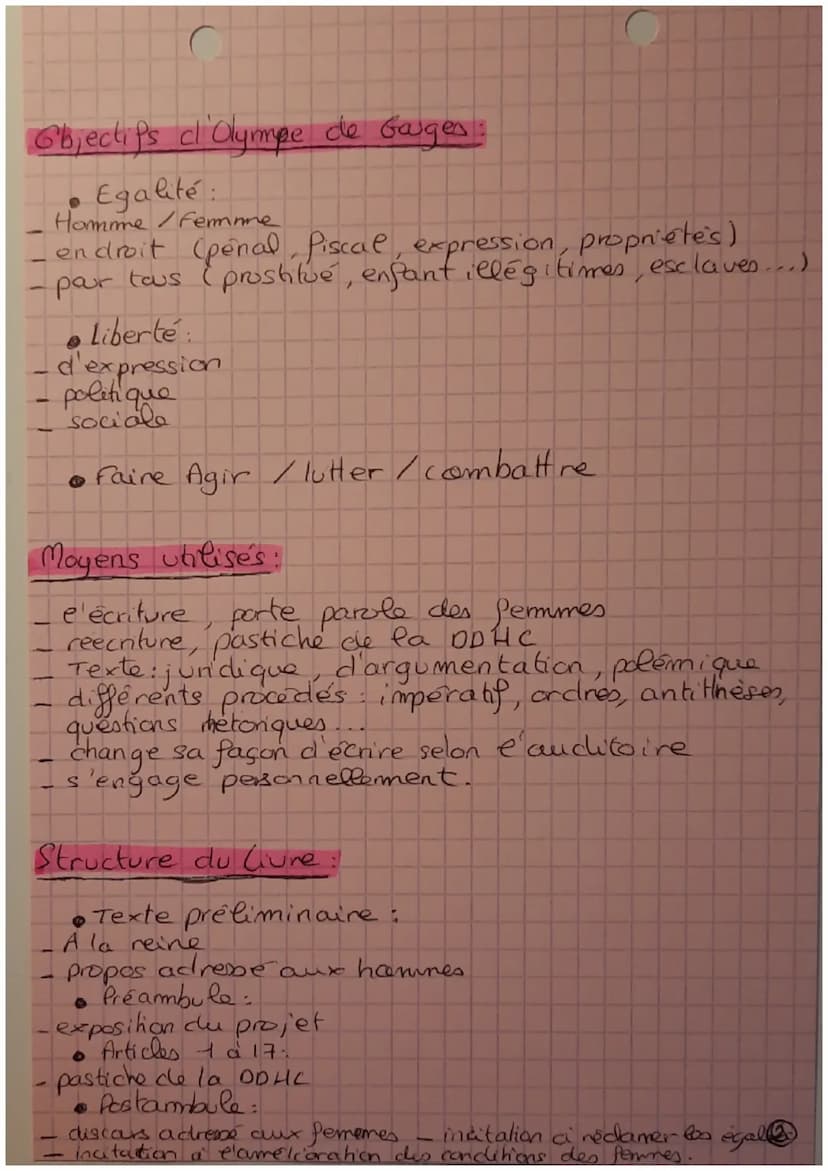 Objectifs d'Olympe de Gouges :
• Egalité :
- Homme / Femme
- en droit (pénal, fiscal, expression, propriétés)
- par tous (prostitué, enfant illégitimes, esclaves...)
• Liberté :
- d'expression
- politique
- sociale
• Faire Agir / lutter / combattre
Moyens utilisés :
- l'écriture, porte parole des femmes
- reecriture, pastiche de la DDHC
- Texte : juridique, d'argumentation, polémique
- différents procédés : impératif, ordres, antithèses,
questions rhétoriques...
- change sa façon d'écrire selon l'auditoire
- s'engage personnellement.
Structure du livre :
• Texte préliminaire :
- À la reine
- propos adressé aux hommes
• Préambule :
- exposition du projet
• Articles 1 à 17 :
- pastiche de la DDHC
• Postambule :
- discours adressé aux femmes - incitation à réclamer les
- incitation à l'amélioration des conditions des femmes. 2